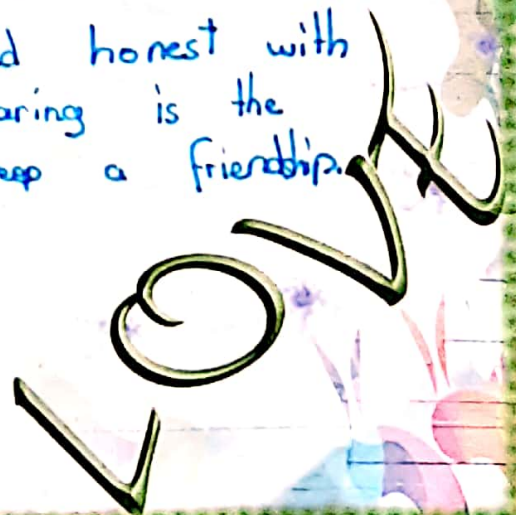 d honest with
aring is the
eep a friendship.
LOVE